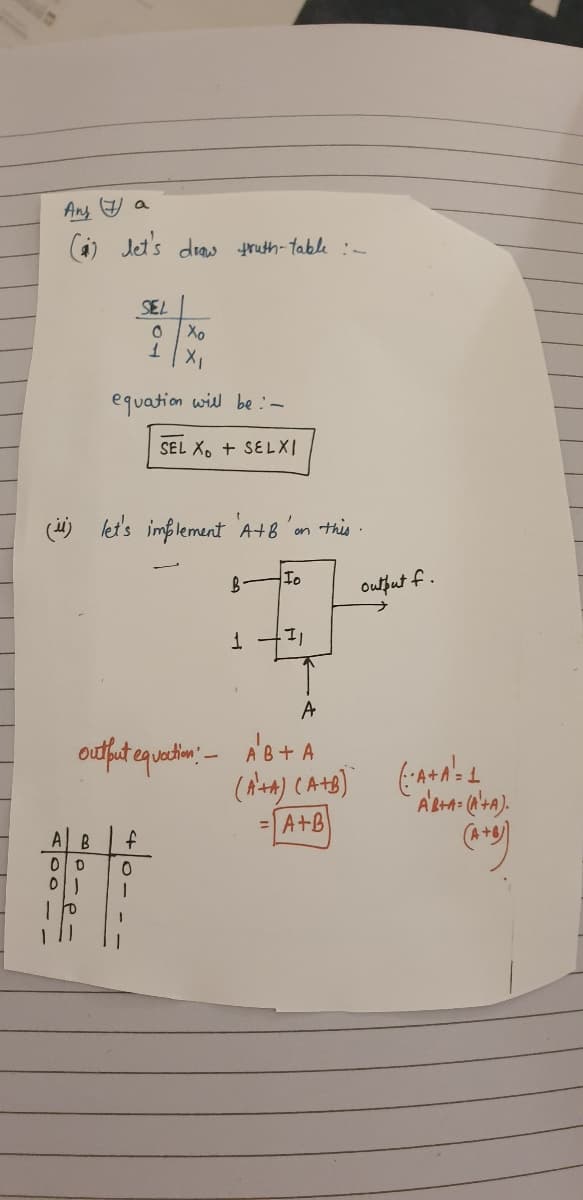 Ans (7) a
(i) let's draw truth-table :-
SEL
0 X₀
1 X₁
equation will be :-
S̅E̅L̅ X₀ + SELX1
(ii) let's implement 'A+B' on this .
B I₀ output f .
1 I₁
A
output equation :- A'B + A
(A'+A) (A+B)
= A+B
(∵ A+A' = 1
A'B+A = (A'+A).
(A+B))
A B f
0 0 0
0 1 1
1 0 1
1 1 1